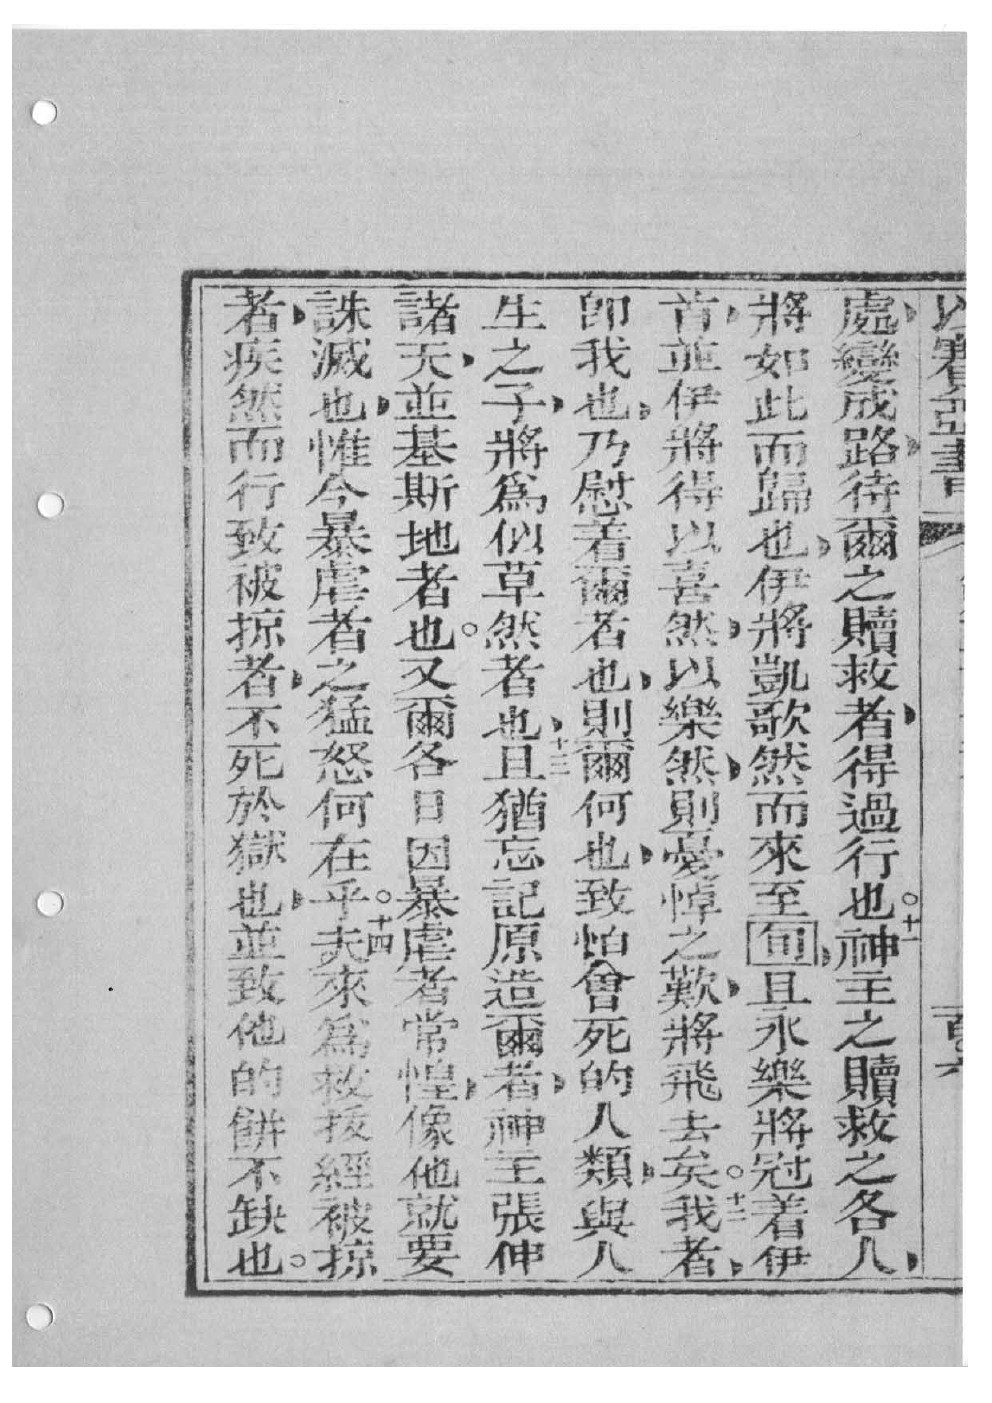 以賽亞書 百六
處變成路待爾之贖救者得過行也。十一神主之贖救之各人
將如此而歸也伊將凱歌然而來至旬且永樂將冠着伊
首並伊將得以喜然以樂然則憂悼之歎將飛去矣。十二我者
卽我也乃慰着爾者也則爾何也致怕會死的人類與人
生之子將爲似草然者也十三且猶忘記原造爾者神主張伸
諸天並基斯地者也。又爾各日因暴虐者常惶像他就要
誅滅也惟今暴虐者之猛怒何在乎。十四夫來爲救拔經被掠
者疾然而行致被掠者不死於獄也並致他的餅不缺也。